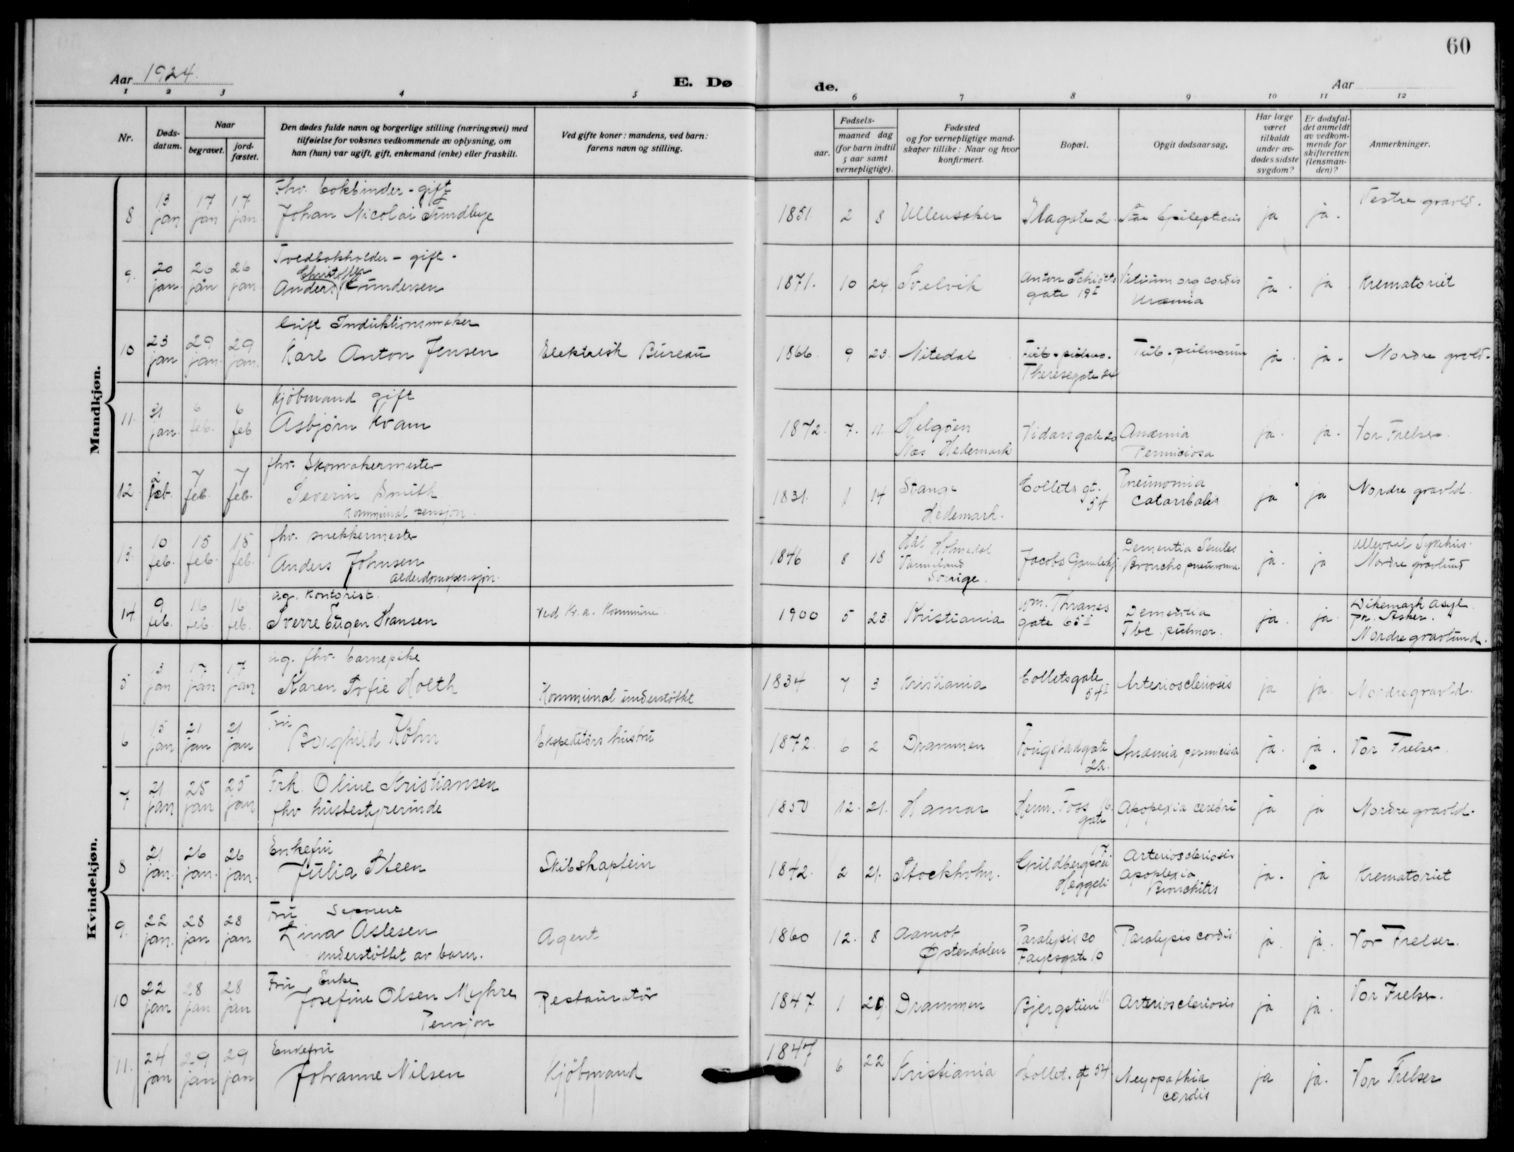 60
Aar 1924.
E. Døde.
Aar
1 2 3 4 5 6 7 8 9 10 11 12
Nr.
Døds-datum.
Naar
begravet.
jord-fæstet.
Den dødes fulde navn og borgerlige stilling (næringsvei) med
tilføielse for voksnes vedkommende av oplysning, om
han (hun) var ugift, gift, enkemand (enke) eller fraskilt.
Ved gifte koner: mandens, ved barn:
farens navn og stilling.
Fødsels-
aar.
maaned dag
(for barn indtil
5 aar samt
vernepligtige).
Fødested
og for vernepligtige mand-
skaper tillike: Naar og hvor
konfirmert.
Bopæl.
Opgit dødsaarsag.
Har læge
været
tilkaldt
under av-
dødes sidste
sygdom?
Er dødsfal-
det anmeldt
av vedkom-
mende for
skifteretten
(lensman-
den)?
Anmerkninger.
Mandkjøn.
Fhv. bokbinder - gift
8 13 jan 17 jan 17 jan Johan Nicolai Sundbye 1851 2 8 Ullensaker Ilagate 2 Epilepticus ja ja. Vestre gravld.
Tredbokholder - gift.
Christoffer
9. 20 jan 26 jan 26 jan Anders Gundersen 1871. 10 24 Svelvik Anton Schiøtts gate 19 Vitium org cordis Uræmia ja. ja Krematoriet
Gift Induktionsmaker
10 23 jan 29 jan. 29 jan. Karl Anton Jensen Elektrisk Bureau 1866. 9 23. Nitedal Tub. pulmo. Theresegate Tub. pulmonum ja. ja. Nordre gravld.
Kjøbmand gift
11. 31 jan. 6 feb. 6 feb Asbjørn Kvam 1872. 7. 11. Helgøen Næs Hedemark Vidarsgate 20 Anæmia Perniciosa ja. ja. Vor Frelser.
fhv. Skomakermester
12 2 feb. 7 feb. 7 feb. Severin Smith 1831. 1 14 Stange Hedemark. Collets gt. 54 Pneumonia Catarrhalis ja ja Nordre gravld.
Kommunal pensjon.
fhv. snekkermester
13 10 feb. 15 feb. 15 feb. Anders Johnsen 1846 8 18 Holmedal Värmland Sverige. Jacobs Dementia Senilis Broncho pneumonia ja. ja Ullevaal Sykehus. Nordre gravlund
alderdomspensjon.
ug. Kontorist.
14 9 feb. 16 feb. 16 feb. Sverre Eugen Hansen ved Kr.a. Kommune 1900 5 23 Kristiania Wm. Thranes gate 65 Dementia Tbc. pulmon. ja. ja Dikemark Asyl pr. Asker. Nordre gravlund.
Kvindekjøn.
ug. fhv. barnepike
5 3 jan 17 jan 17 jan Karen Sofie Holth Kommunal understøttet 1834 7 3 Kristiania Colletsgate 54 Arteriosclerosis ja ja Nordre gravld.
Fru
6 15 jan 21 jan 21 jan Borghild Köhn Ekspeditørs hustru 1872. 6 2 Drammen Fougstadgate 22. Anæmia perniciosa ja. ja. Vor Frelser.
7 21 jan 25 jan 25 jan Frk Oline Kristiansen 1850 12. 21. Hamar Herm. Foss gate Apoplexia cerebri ja ja Nordre gravld.
fhv husbestyrerinde
Enkefru
8 21 jan. 26 jan. 26 jan. Julia Steen Skibskaptein 1842. 2 21. Stockholm. Guldbergsvei 17 Heggeli Arteriosclerosis Apoplexia Bronchitis ja. ja Krematoriet
Fru Separert
9. 22 jan. 28 jan 28 jan Lina Aslesen Agent 1860 12. 8 Aamot Østerdalen Fayesgate 10 Paralysis cordis ja ja. Vor Frelser.
understøttet av barn.
Fru Enke
10 22 jan 28 jan 28 jan Josefine Olsen Myhre Restauratør 1847 1 29 Drammen Bjergstien Arteriosclerosis ja ja. Vor Frelser.
Pensjon
Enkefru
11. 24 jan 29 jan 29 jan Johanne Nilsen Kjøbmand 1847 6 22 Kristiania Collet. gt 54 Myopathia cordis ja ja. Vor Frelser